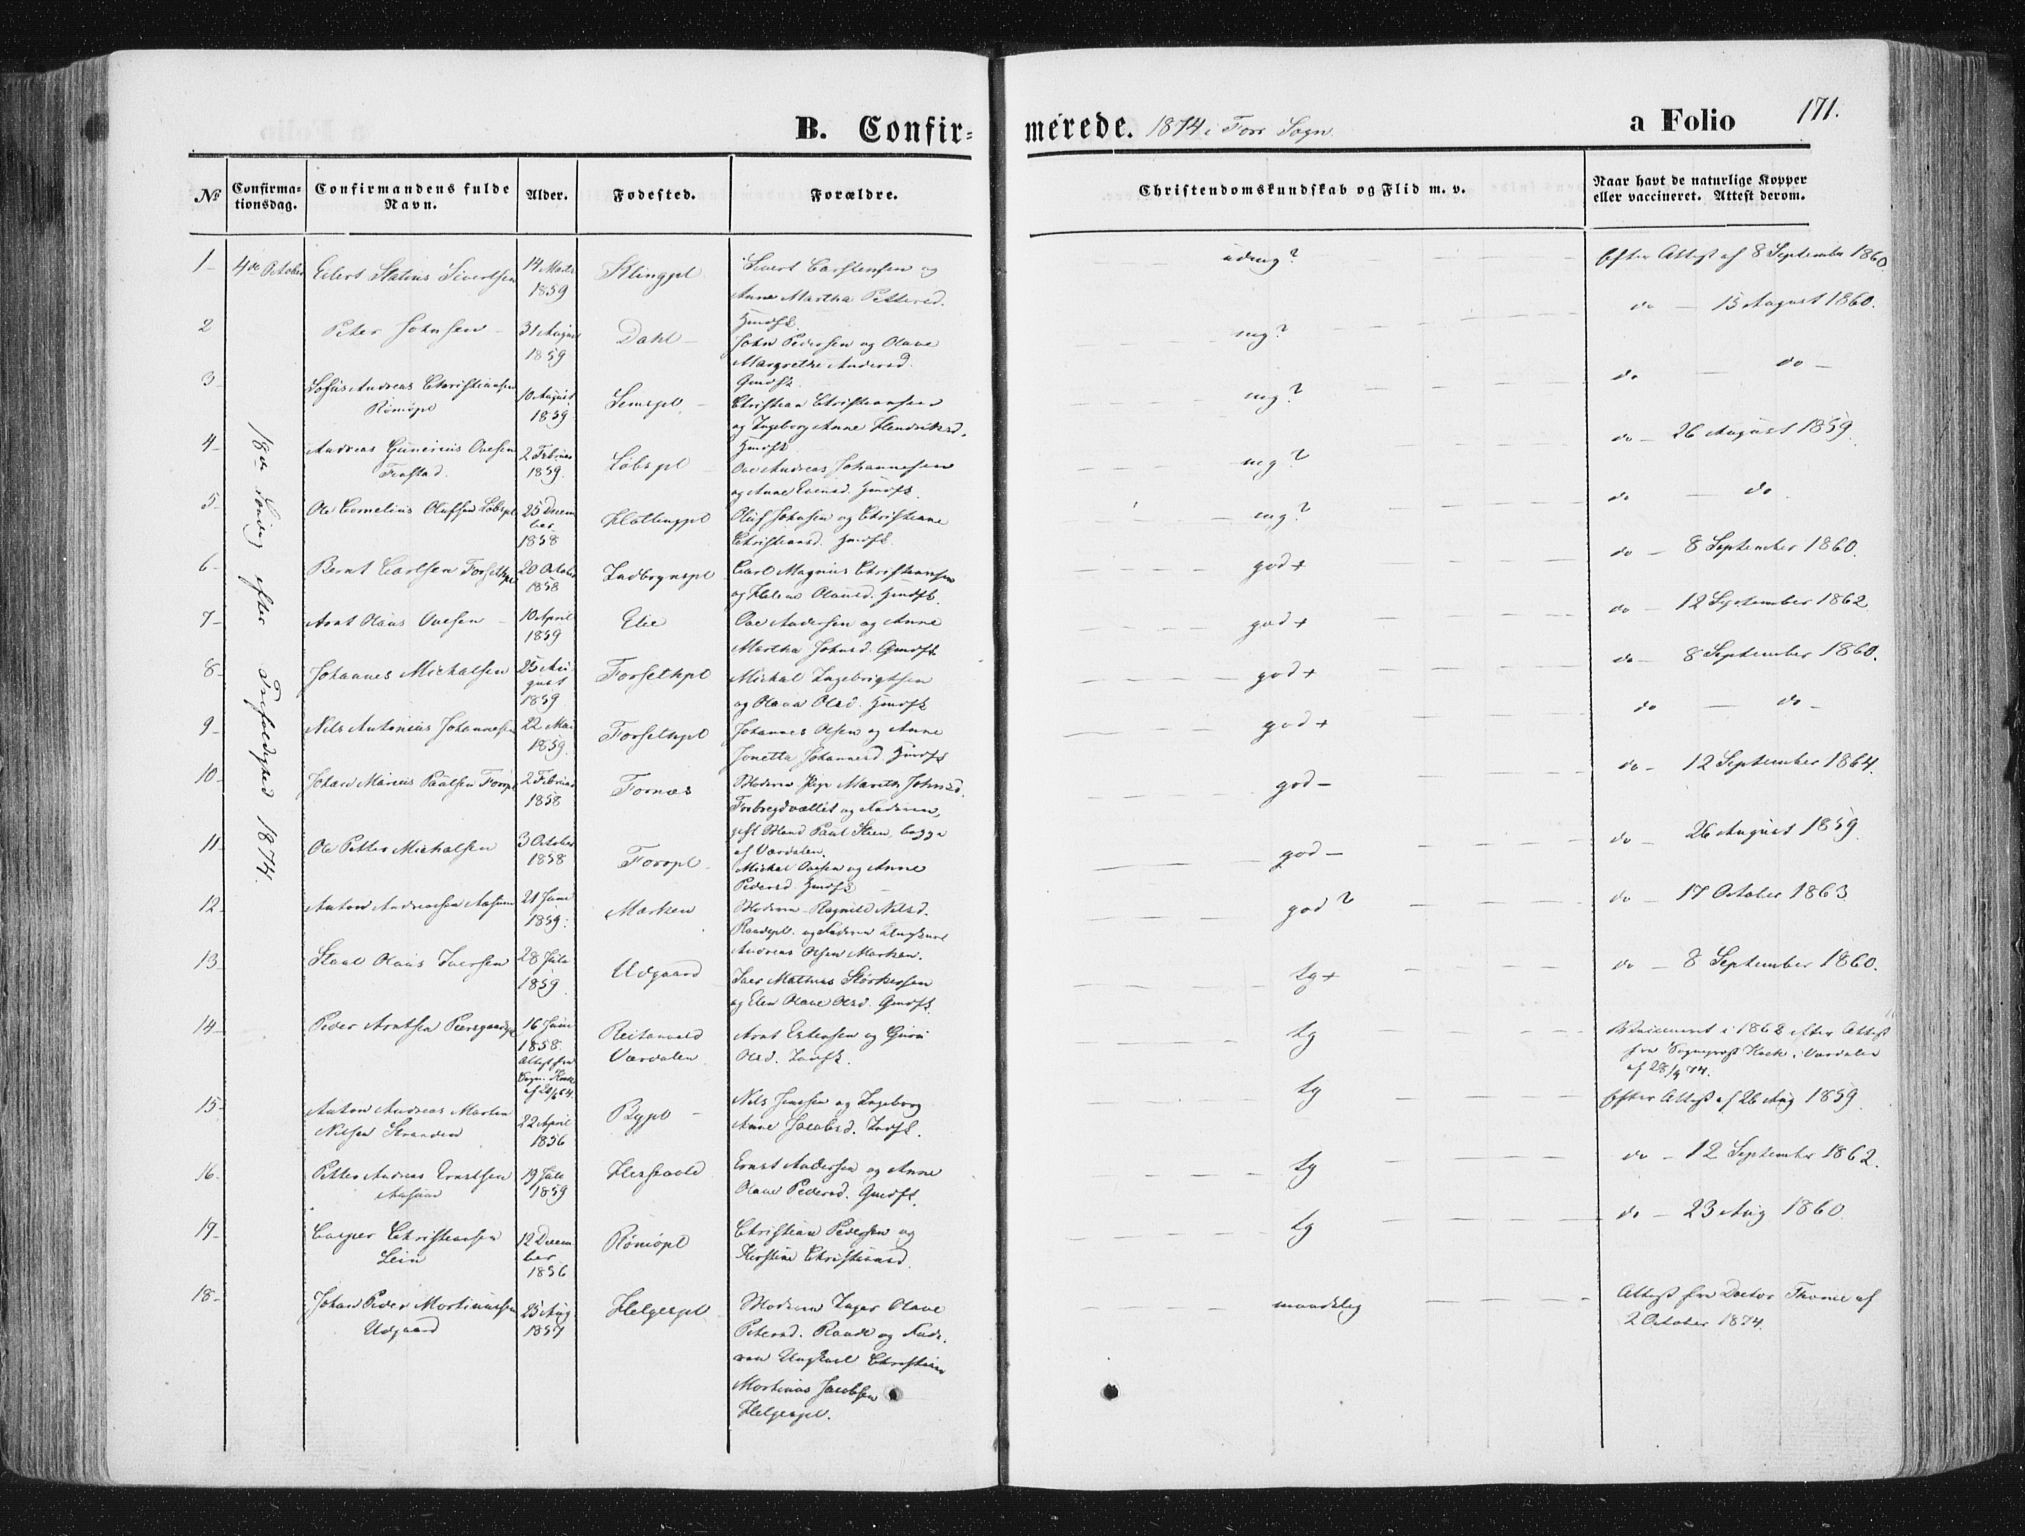 B. Confir-
merede. 1874 i For Sogn
a Folio 171.
No
Confirma-
tionsdag.
Confirmandens fulde
Navn.
Alder.
Fødested.
Forældre.
Christendomskundskab og Flid m. v.
Naar havt de naturlige Kopper
eller vaccineret. Attest derom.
4de October
18de Søndag efter Trefoldighed 1874.
1 Eilert Statius Sivertsen 14 Marts 1859
Sivert Carstensen og
Anne Martha Pettersd.
Efter Attest af 8 September 1860.
2 Peter Johnsen 31 August 1859 Dahl
John Pedersen og Olave
Margrethe Andersd.
Gmdfk.
mg?
do 15 August 1860.
3 Sofus Andreas Christiansen
Römöpl 10 August 1859 Semspl
Christian Christiansen
og Ingeborg Anne Hendriksd.
Hmdfk.
mg?
do do
4 Andreas Gunerius Ovesen
2 Februar 1859. Lobspl
Ove Andreas Johannesen
og Anne Evensd. Hmdfk.
mg?
do 26 August 1859
5 Ole Cornelius Olufsen Lobspl 25 Decem
ber
1858
Oluf Johnsen og Christiane
Christiansd. Hmdfk.
mg?
do do
6 Bernt Carlsen Forsethpl 20 October 1858
Carl Magnus Christiansen
og Helene Olausd. Hmdfk.
god +
do 8 September 1860.
7 Arnt Olaus Ovesen 10 April 1859
Ove Andersen og Anne
Martha Johnsd. Gmdfk
god +
do 12 September 1862
8 Johannes Michalsen 25 Au
gust
1859 Forsethpl
Michal Ingebrigtsen
og Olava Olsd. Hmdfk
god +
do 8 September 1860.
9 Nils Antonius Johannesen 22 Mai 1859. Forsethpl
Johannes Olsen og Anne
Jonetta Johannesd. Hmdfk
god +
do do
10 Johan Marius Paulsen Forrpl 2 Februar 1858 Fornæs
Moderen Pige Mareth Johnsd.
Forbregdvallet og Faderen,
gift Mand Paul Steen, begge
af Værdalen.
god -
do 12 September 1864.
11 Ole Petter Michalsen 3 October 1858 Forrpl
Michal Ovesen og Anne
Pedersd. Hmdfk
god -
do 26 August 1859
12 Anton Andreassen Aasum 21 Juni 1859. Marken
Moderen Ragnild Nilsd.
Raadepl. og Faderen Ungkarl
Andreas Olsen Marken.
god?
do 17 October 1863
13 Staal Olaus Iversen 28 Juli 1859. Udgaard
Iver Mathias Størkersen
og Elen Olave Olsd. Gmdfk
tg +
do 8 September 1860.
14 Peder Arntsen 16 Juni
1858.
Attest fra
Sogn. Kock
Værdalen
Arnt Estensen og Guru
Olsd. Indfk.
tg
Vaccineret i 1862 efter Attest
fra Sogneprest Kock, Værdalen
af 28/9 74.
15 Anton Andreas Marten
Nilsen Stranden 22 April
1856 Bypl
Nils Jensen og Ingeborg
Anne Jacobsd. Indfk.
tg
Efter Attest af 26 Aug 1859
16. Petter Andreas Ernstsen
Aasum 19 Juli
1859
Ernst Andersen og Anne
Olave Pedersd. Gmdfk.
tg
do 12 September 1862.
17 Casper Christiansen
Lein 12 Decem
ber
1856 Römöpl
Christian Pedersen og
Kirstine Christiansd.
tg
do 23 Aug 1860.
18 Johan Peder Martinussen
Udgaard 25 Aug
1857 Helgespl
Moderen Inger Olave
Petersd. Raade og Fade-
ren Ungkarl Christian
Martinus Jacobsen
Helgespl.
maadelig
Attest fra Doctor Thonie af
2 October 1874.